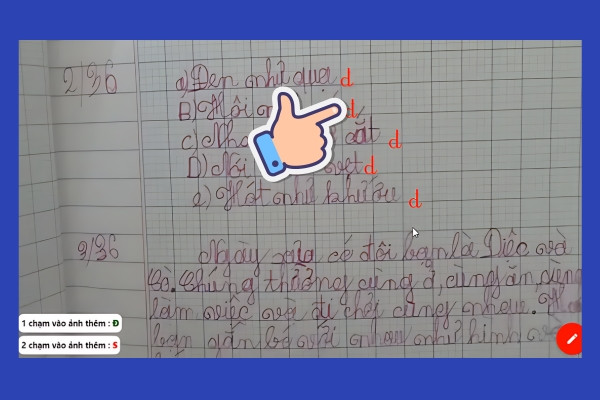 2/36 a) Đen như quạ đ
B) Hôi đ
c) cắt đ
D) Nói vẹt đ
e) Hót như khướu đ
3/36 Ngày xưa có đôi bạn là Diệc và
Cò. Chúng thường cùng ở, cùng ăn, cùng
làm việc và đi chơi cùng nhau.
bạn gắn bó với nhau như hình
1 chạm vào ảnh thêm : Đ
2 chạm vào ảnh thêm : S